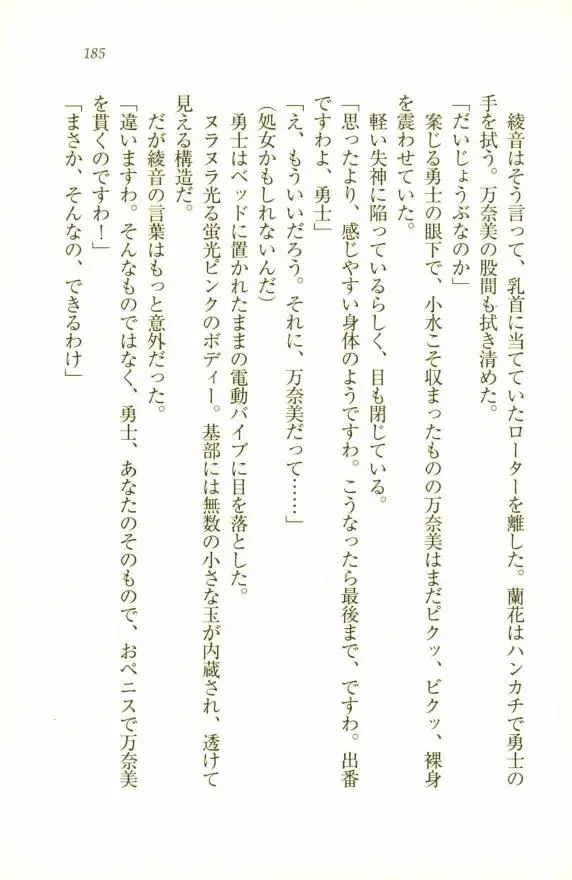 185
綾音はそう言って、乳首に当てていたローターを離した。蘭花はハンカチで勇士の
手を拭う。万奈美の股間も拭き清めた。
「だいじょうぶなのか」
案じる勇士の眼下で、小水こそ収まったものの万奈美はまだピクッ、ビクッ、裸身
を震わせていた。
軽い失神に陥っているらしく、目も閉じている。
「思ったより、感じやすい身体のようですわ。こうなったら最後まで、ですわ。出番
ですわよ、勇士」
「え、もういいだろう。それに、万奈美だって……」
(処女かもしれないんだ)
勇士はベッドに置かれたままの電動バイブに目を落とした。
ヌラヌラ光る蛍光ピンクのボディー。基部には無数の小さな玉が内蔵され、透けて
見える構造だ。
だが綾音の言葉はもっと意外だった。
「違いますわ。そんなものではなく、勇士、あなたのそのもので、おペニスで万奈美
を貫くのですわ！」
「まさか、そんなの、できるわけ」